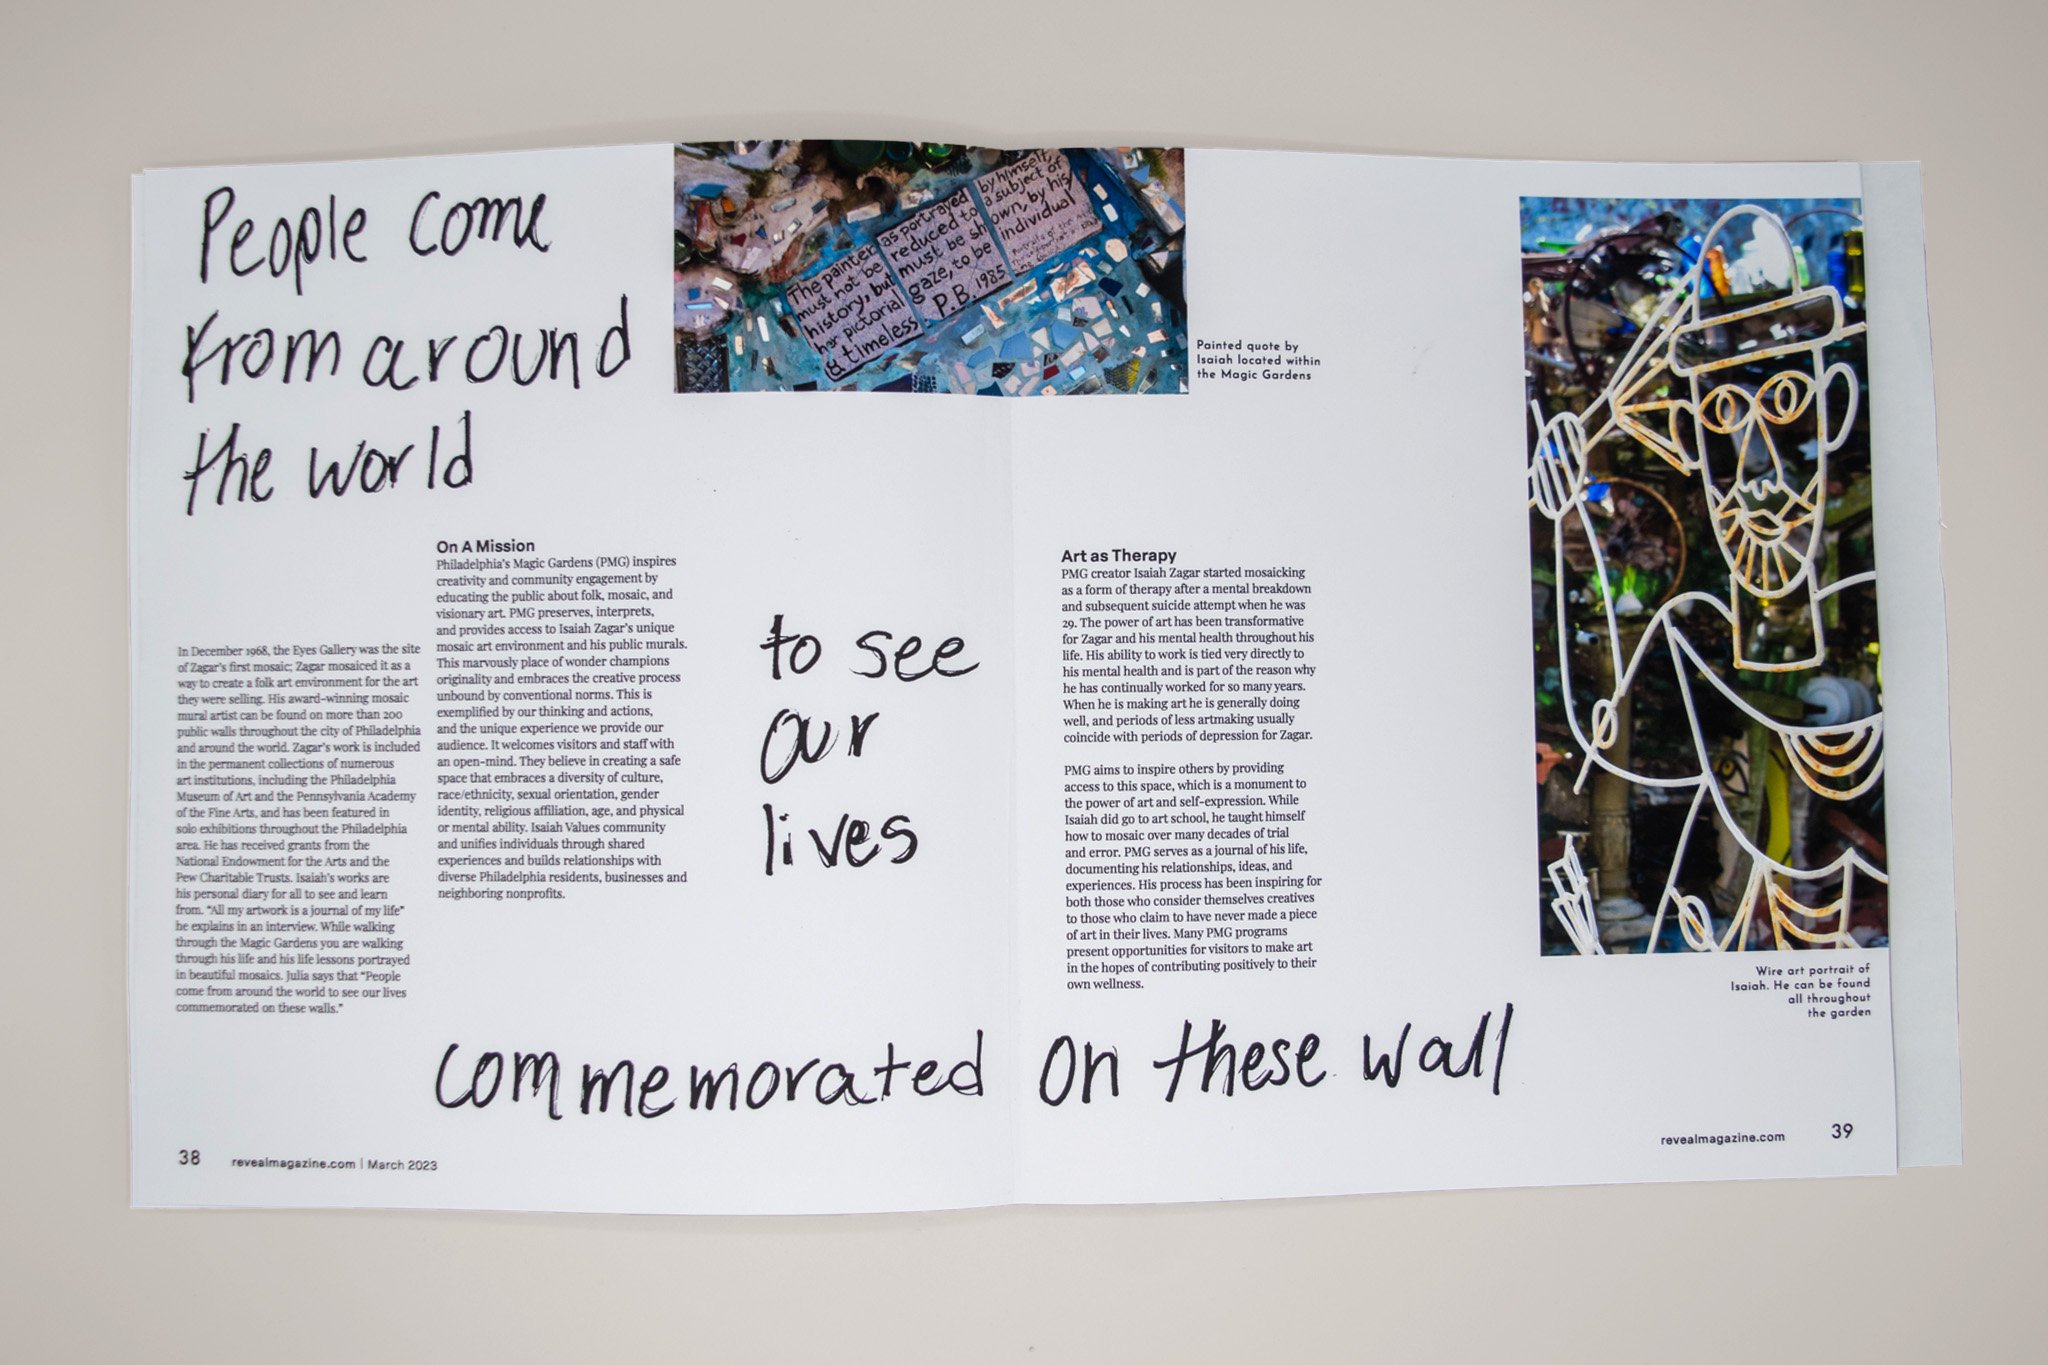 People come
from around
the world
The painter as portrayed by himself,
must not be reduced to a subject of
history, but must be shown, by his
her pictorial gaze, to be individual
& timeless P.B. 1985
Painted quote by
Isaiah located within
the Magic Gardens
In December 1968, the Eyes Gallery was the site
of Zagar's first mosaic; Zagar mosaiced it as a
way to create a folk art environment for the art
they were selling. His award-winning mosaic
mural artist can be found on more than 200
public walls throughout the city of Philadelphia
and around the world. Zagar's work is included
in the permanent collections of numerous
art institutions, including the Philadelphia
Museum of Art and the Pennsylvania Academy
of the Fine Arts, and has been featured in
solo exhibitions throughout the Philadelphia
area. He has received grants from the
National Endowment for the Arts and the
Pew Charitable Trusts. Isaiah's works are
his personal diary for all to see and learn
from. "All my artwork is a journal of my life"
he explains in an interview. While walking
through the Magic Gardens you are walking
through his life and his life lessons portrayed
in beautiful mosaics. Julia says that "People
come from around the world to see our lives
commemorated on these walls."
On A Mission
Philadelphia's Magic Gardens (PMG) inspires
creativity and community engagement by
educating the public about folk, mosaic, and
visionary art. PMG preserves, interprets,
and provides access to Isaiah Zagar's unique
mosaic art environment and his public murals.
This marvously place of wonder champions
originality and embraces the creative process
unbound by conventional norms. This is
exemplified by our thinking and actions,
and the unique experience we provide our
audience. It welcomes visitors and staff with
an open-mind. They believe in creating a safe
space that embraces a diversity of culture,
race/ethnicity, sexual orientation, gender
identity, religious affiliation, age, and physical
or mental ability. Isaiah Values community
and unifies individuals through shared
experiences and builds relationships with
diverse Philadelphia residents, businesses and
neighboring nonprofits.
to see
our
lives
Art as Therapy
PMG creator Isaiah Zagar started mosaicking
as a form of therapy after a mental breakdown
and subsequent suicide attempt when he was
29. The power of art has been transformative
for Zagar and his mental health throughout his
life. His ability to work is tied very directly to
his mental health and is part of the reason why
he has continually worked for so many years.
When he is making art he is generally doing
well, and periods of less artmaking usually
coincide with periods of depression for Zagar.
PMG aims to inspire others by providing
access to this space, which is a monument to
the power of art and self-expression. While
Isaiah did go to art school, he taught himself
how to mosaic over many decades of trial
and error. PMG serves as a journal of his life,
documenting his relationships, ideas, and
experiences. His process has been inspiring for
both those who consider themselves creatives
to those who claim to have never made a piece
of art in their lives. Many PMG programs
present opportunities for visitors to make art
in the hopes of contributing positively to their
own wellness.
Wire art portrait of
Isaiah. He can be found
all throughout
the garden
commemorated on these wall
38 revealmagazine.com | March 2023
revealmagazine.com 39